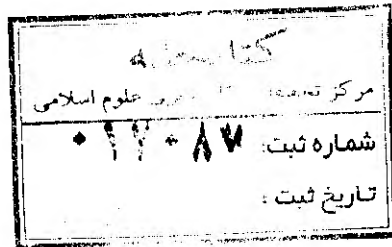 کتابخانه
مرکز علوم اسلامی
شماره ثبت: ۰۱۲۰۸۷
تاریخ ثبت :